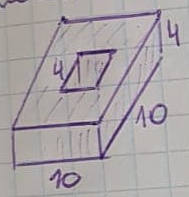 4
4
10
10